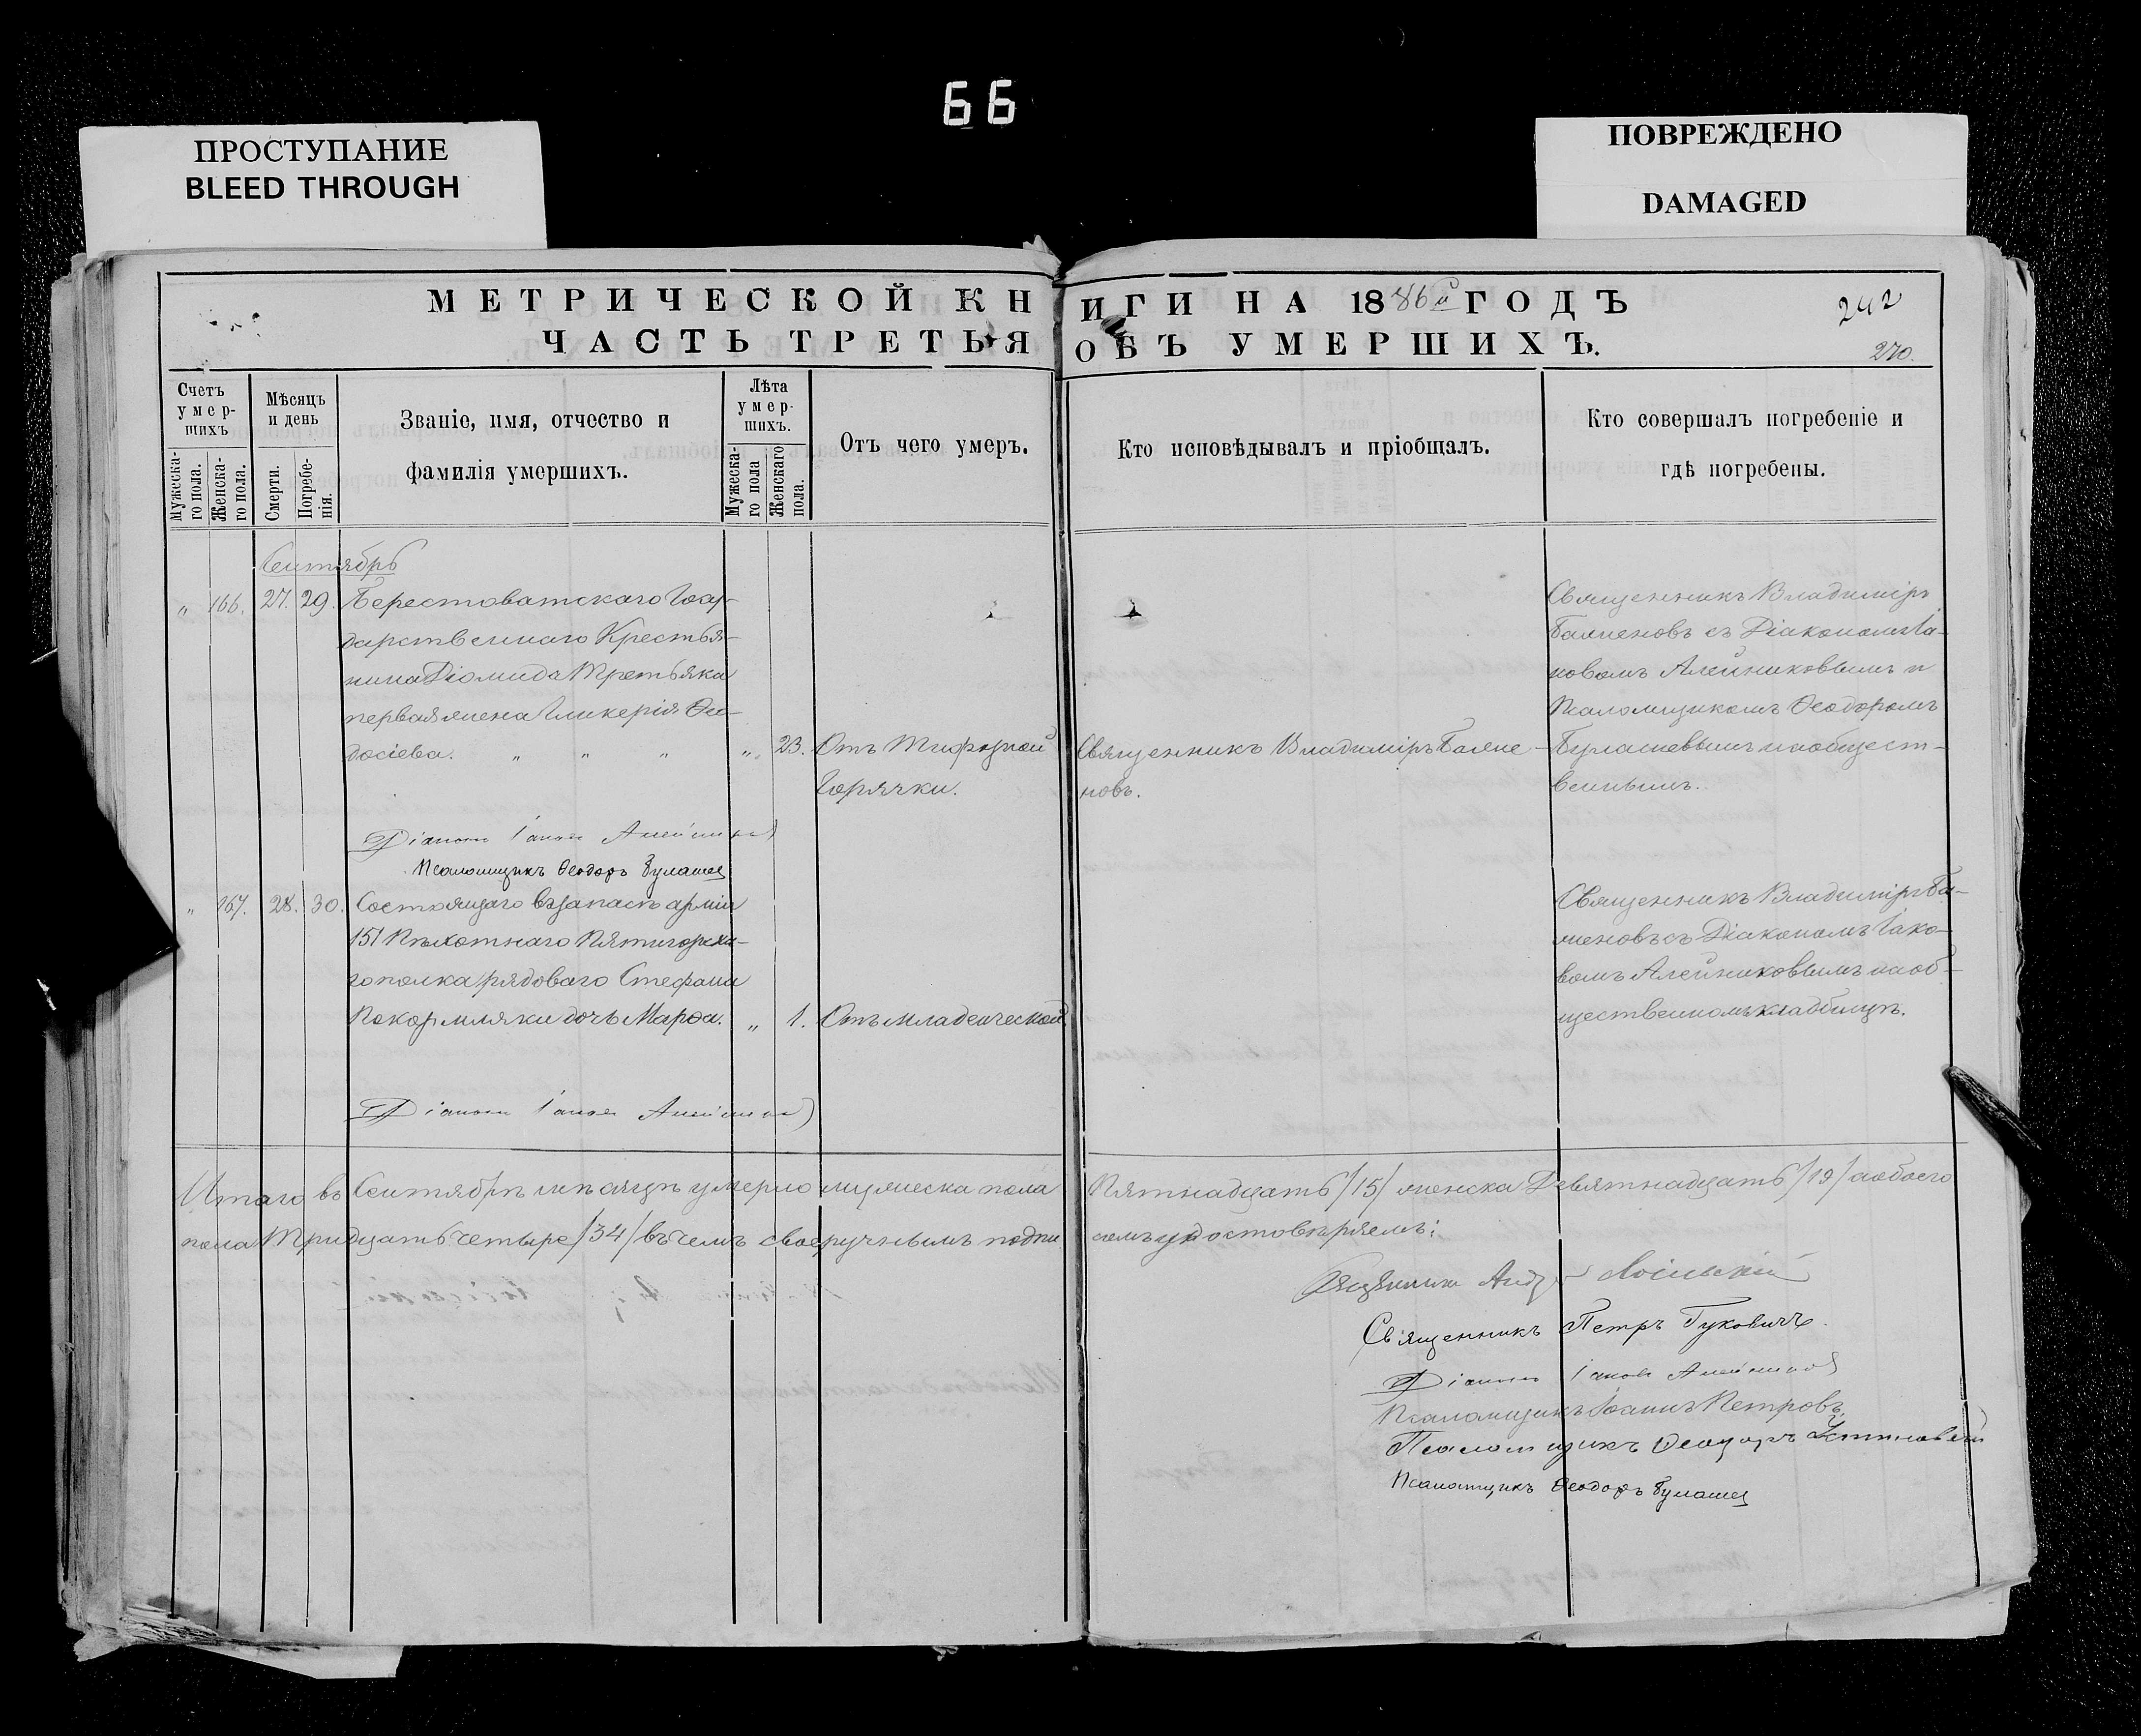 66
ПРОСТУПАНИЕ
BLEED THROUGH
ПОВРЕЖДЕНО
DAMAGED
МЕТРИЧЕСКОЙ КНИГИ НА 1886й ГОДЪ
ЧАСТЬ ТРЕТЬЯ ОБЪ УМЕРШИХЪ.
242
270.
Счетъ умер-шихъ
Мужеска-го пола.
Женска-го пола.
Мѣсяцъ и день
Смерти.
Погребе-нія.
Званіе, имя, отчество и
фамилія умершихъ.
Лѣта умер-шихъ.
Мужеска-го пола
Женскаго пола.
Отъ чего умеръ.
Кто исповѣдывалъ и пріобщалъ.
Кто совершалъ погребеніе и
гдѣ погребены.
Сентябрь
„ 166. 27. 29. Берестоватскаго Госу-
дарственнаго Крестья-
нина Діомида Третьяка
первая жена Гликерія Ѳео-
досіева. „ „ „ „ 23. Отъ Тифозной
Горячки.
Священникъ Владиміръ Баже-
новъ.
Священникъ Владиміръ
Баженовъ съ Діакономъ Іа-
ковомъ Алейниковымъ и
Псаломщикомъ Ѳеодоромъ
Булашевымъ на общест-
веннымъ.
Діаконъ Іаковъ Алейниковъ
Псаломщикъ Ѳеодоръ Булашев
„ 167. 28. 30. Состоящаго въ запасѣ арміи
151 Пѣхотнаго Пятигорска-
го полка рядоваго Стефана
Покормляки дочь Марѳа. „ 1. Отъ младенческой
Священникъ Владиміръ Ба-
женовъ съ Діакономъ Іако-
вомъ Алейниковымъ на об-
щественномъ кладбищѣ.
Діаконъ Іаковъ Алейниковъ
Итого въ Сентябрѣ мѣсяцѣ умерло мужеска пола Пятнадцать /15/ женска Девятнадцать /19/ а обоего
пола Тридцать четыре /34/ въ чемъ своеручнымъ подпи сомъ удостовѣряемъ:
Священникъ
Священникъ Петръ Гуковичъ.
Діаконъ Іаковъ Алейниковъ
Псаломщикъ Іоаннъ Петровъ
Псаломщикъ Ѳеодоръ
Псаломщикъ Ѳеодоръ Булашев